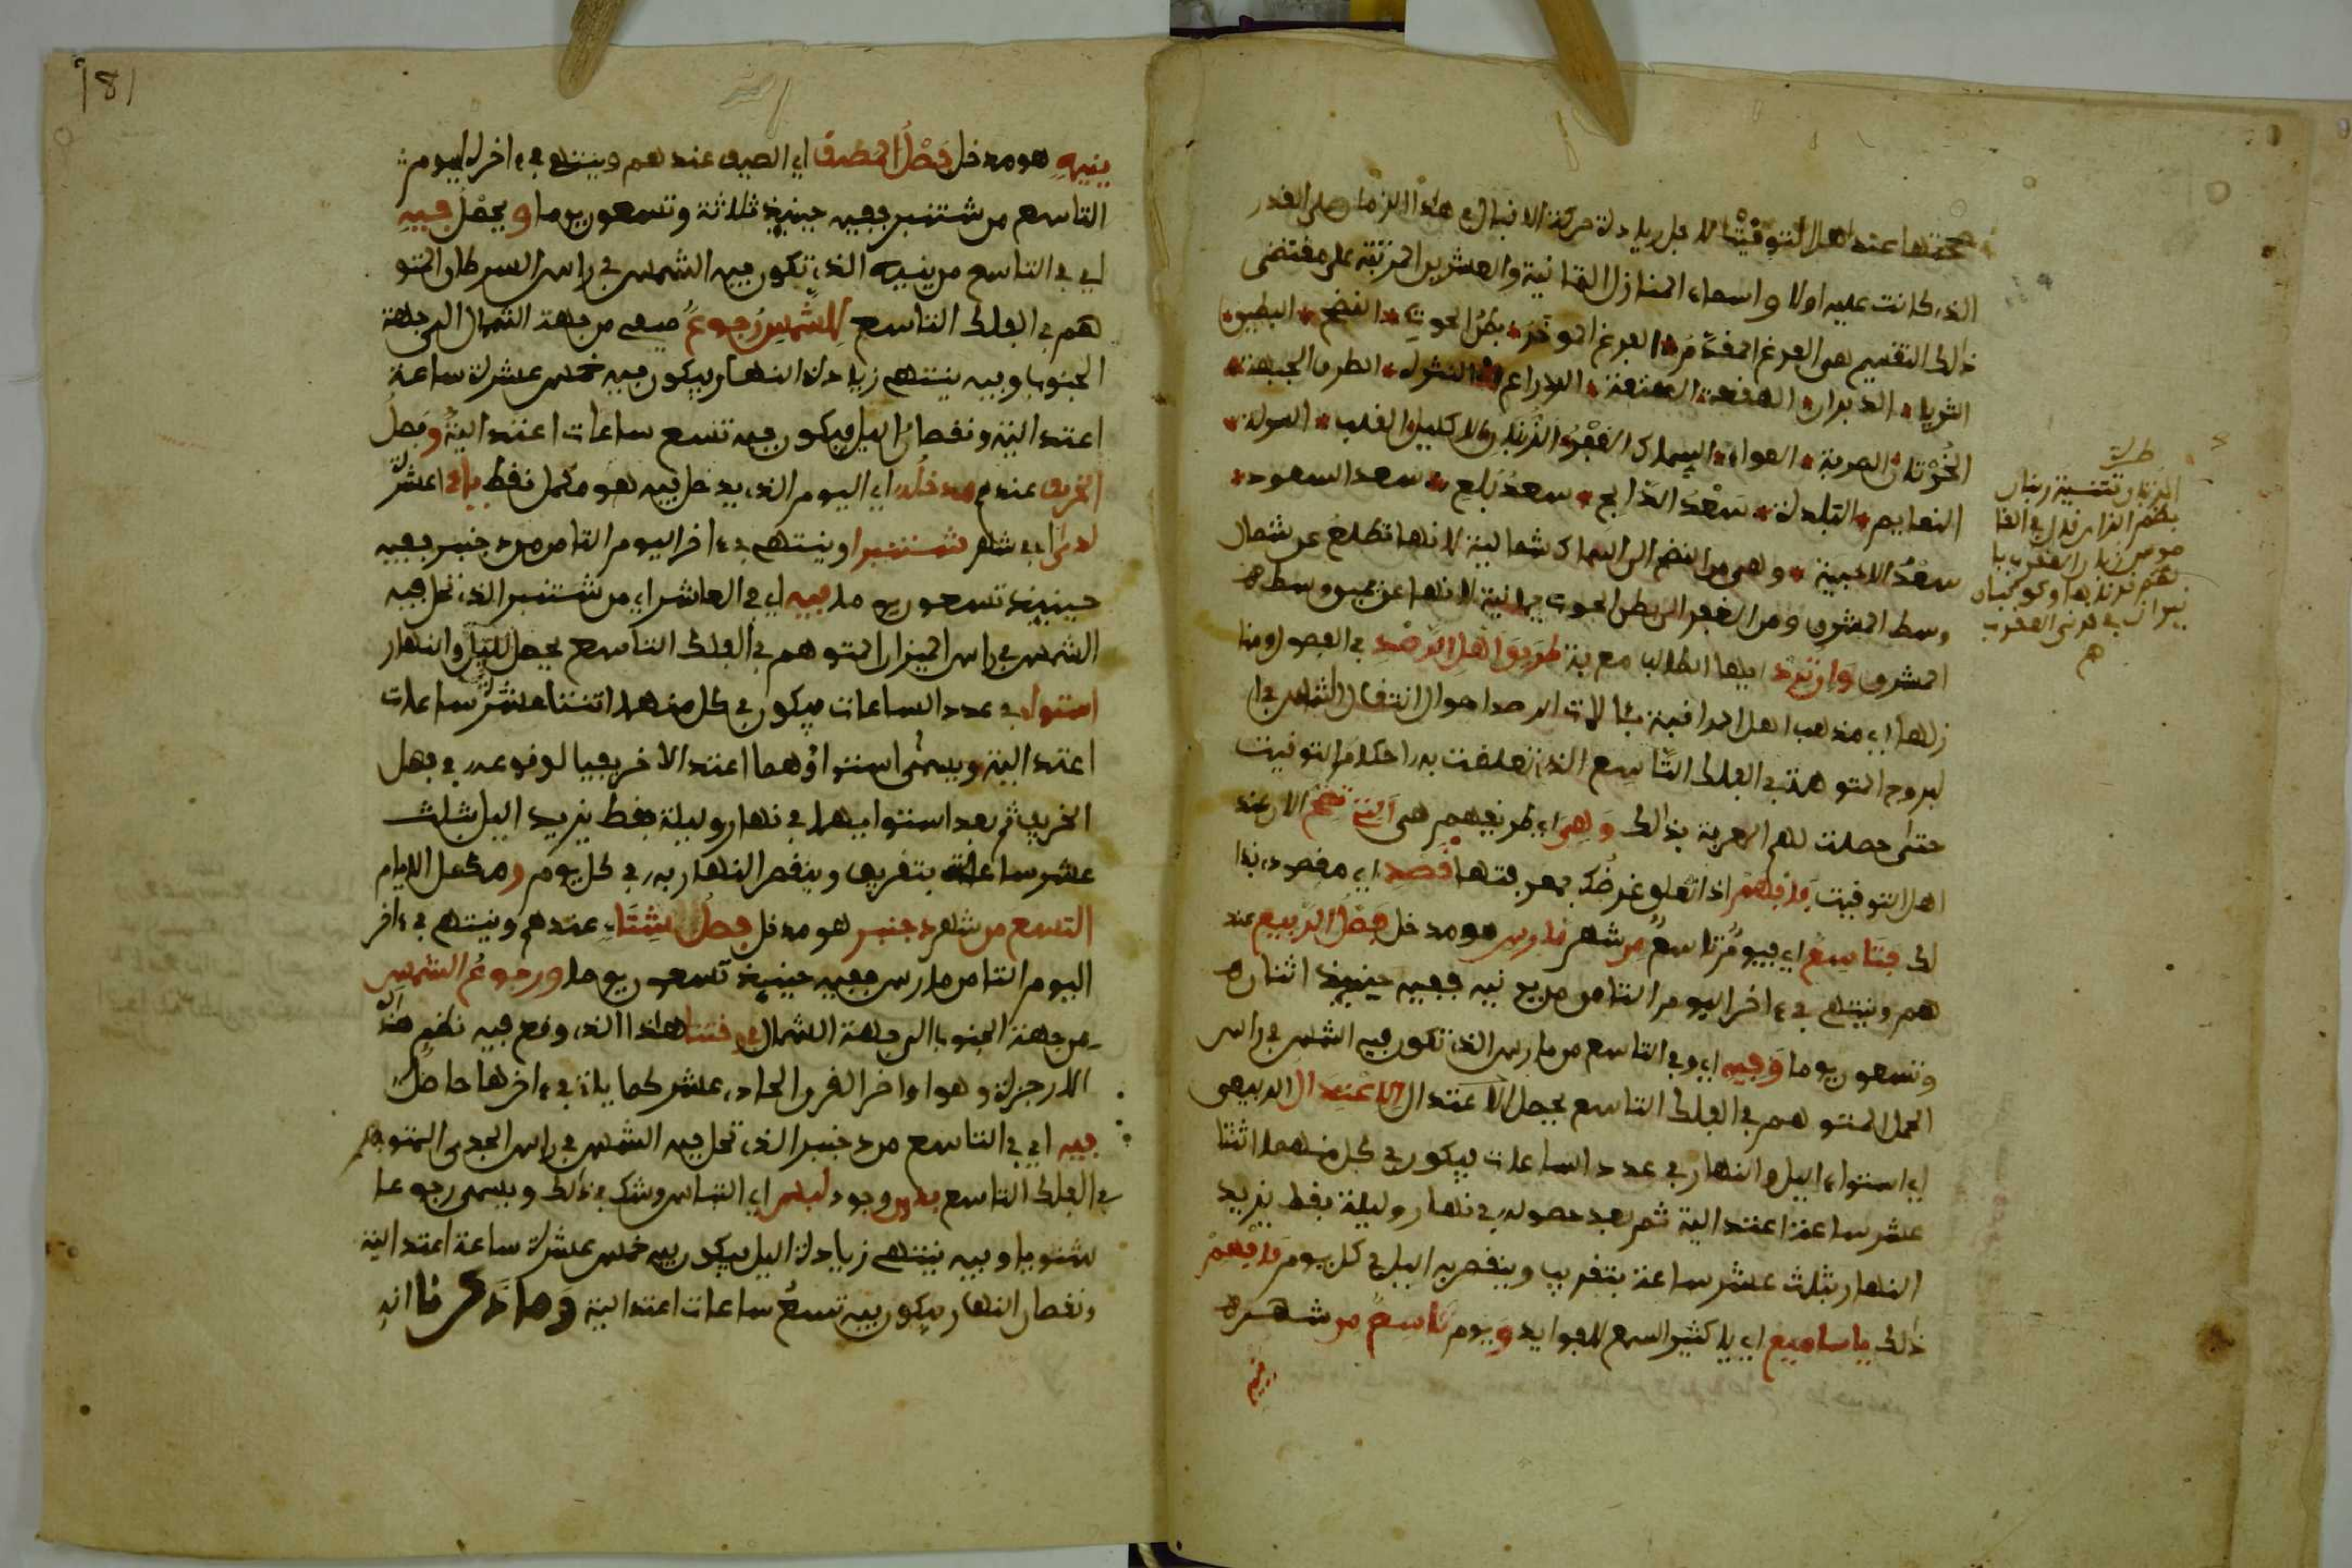 عند اهل التوقيت لاجل زيادة حركة الاقبال في هذا الزمان على القدر
الذي كانت عليه اولا واسماء المنازل الثمانية والعشرين المرتبة على مقتضى
ذلك التقسيم هى الفرغ المقدم الفرغ الموخر بطن الحوت النضح البطين
الثريا الدبران الهقعة الهنعة الذراع النثرة الطرف الجبهة
الخرتان الصرفة العواء السماك الغفر الزبنان الاكليل القلب الشولة
النعايم البلدة سعد الذابح سعد بلع سعد السعود
سعد الاخبية وهى من النضح الى السماك شمالية لانها تطلع عن شمال
وسط المشرق ومن الغفر الى بطن الحوت يمانية لانها عن يمين وسط
المشرق وان ترد ايها الطالب معرفة طريق اهل الرصد في الفصول ومنا
زلها اي مذهب اهل المراقبة بئالات الرصد احوال انتقال الشمس في ا
لبروج المتوهمة في الفلك التاسع الذي تعلقت به احكام التوقيت
حتى حصلت لهم المعرفة بذالك وهي اي طريقهم هى التي تفهم الان عند
اهل التوقيت فافهم اذا تعلق غرضك بمعرفتها قصد اي مقصود بذا
لك فتاسع اي فيوم تاسع من شهر مارس هو مدخل فصل الربيع عند
هم وينتهي في ءاخر اليوم الثامن من ينيه ففيه حينيذ اثنان
وتسعون يوما وفيه اي وفي التاسع من مارس الذي تكون فيه الشمس في راس
الحمل المتوهم في الفلك التاسع يحصل الاعتدال الاعتدال الربيعي
اي استواء اليل والنهار في عدد الساعات فيكون في كل منهما اثنتا
عشر ساعة اعتدالية ثم بعد حصوله في نهار وليلة فقط يزيد
النهار بثلث عشر ساعة بتقريب وينقص به اليل في كل يوم فافهم
ذلك ياسامع اي يا كثير السمع للفوايد ويوم تاسع من شهر
ينيه
طرة
الزبنان تثنية زبنان
ينيه هو مدخل فصل المصيف اي الصيف عندهم وينتهي في ءاخر اليوم
التاسع من شتنبر ففيه حينيذ ثلاثة وتسعون يوما ويحصل فيه
اي في التاسع من ينيه الذي تكون فيه الشمس في راس السرطان المتو
هم في الفلك التاسع للشمس رجوع صيفي من جهة الشمال الى جهة
الجنوب وفيه ينتهي زيادة النهار فيكون فيه خمس عشرة ساعة
اعتدالية ونقصان اليل فيكون فيه تسع ساعات اعتدالية وفصل
الخريف عندهم مدخله اي اليوم الذي يدخل فيه هو مكمل نقط عشر
لدى اي في شهر شتنبر وينتهي في ءاخر اليوم الثامن من دجنبر ففيه
حينيذ تسعون يوما فيه اي في العاشر اي من شتنبر الذي تحل فيه
الشمس في راس الميزان المتوهم في الفلك التاسع يحصل لليل والنهار
استواء في عدد الساعات فيكون في كل منهما اثنتا عشرة ساعات
اعتدالية ويسمى استواؤهما اعتدالا خريفيا لوقوعه في فصل
الخريف ثم بعد استوايهما في نهار وليلة فقط يزيد اليل بثلث
عشر ساعات بتقريب وينقص النهار به في كل يوم ومكمل الايام
التسع من شهر دجنبر هو مدخل فصل الشتاء عندهم وينتهي في ءاخر
اليوم الثامن مارس ففيه حينيذ تسعون يوما ورجوع الشمس
من جهة الجنوب الى جهة الشمال في وقتنا هذا الذي وقع فيه نظم هذه
الارجزة وهو اواخر القرن الحادي عشر كما ياتي في ءاخرها حاصل
فيه اي في التاسع من دجنبر الذي تحل فيه الشمس في راس الجدى المتوهم
في الفلك التاسع بدون وجود لبس اي التباس وشك في ذلك ويسمى رجوعا
شتويا وفيه ينتهي زيادة اليل فيكون فيه خمس عشرة ساعة اعتدالية
ونقصان النهار فيكون فيه تسع ساعات اعتدالية وما ذكرنا انه
181